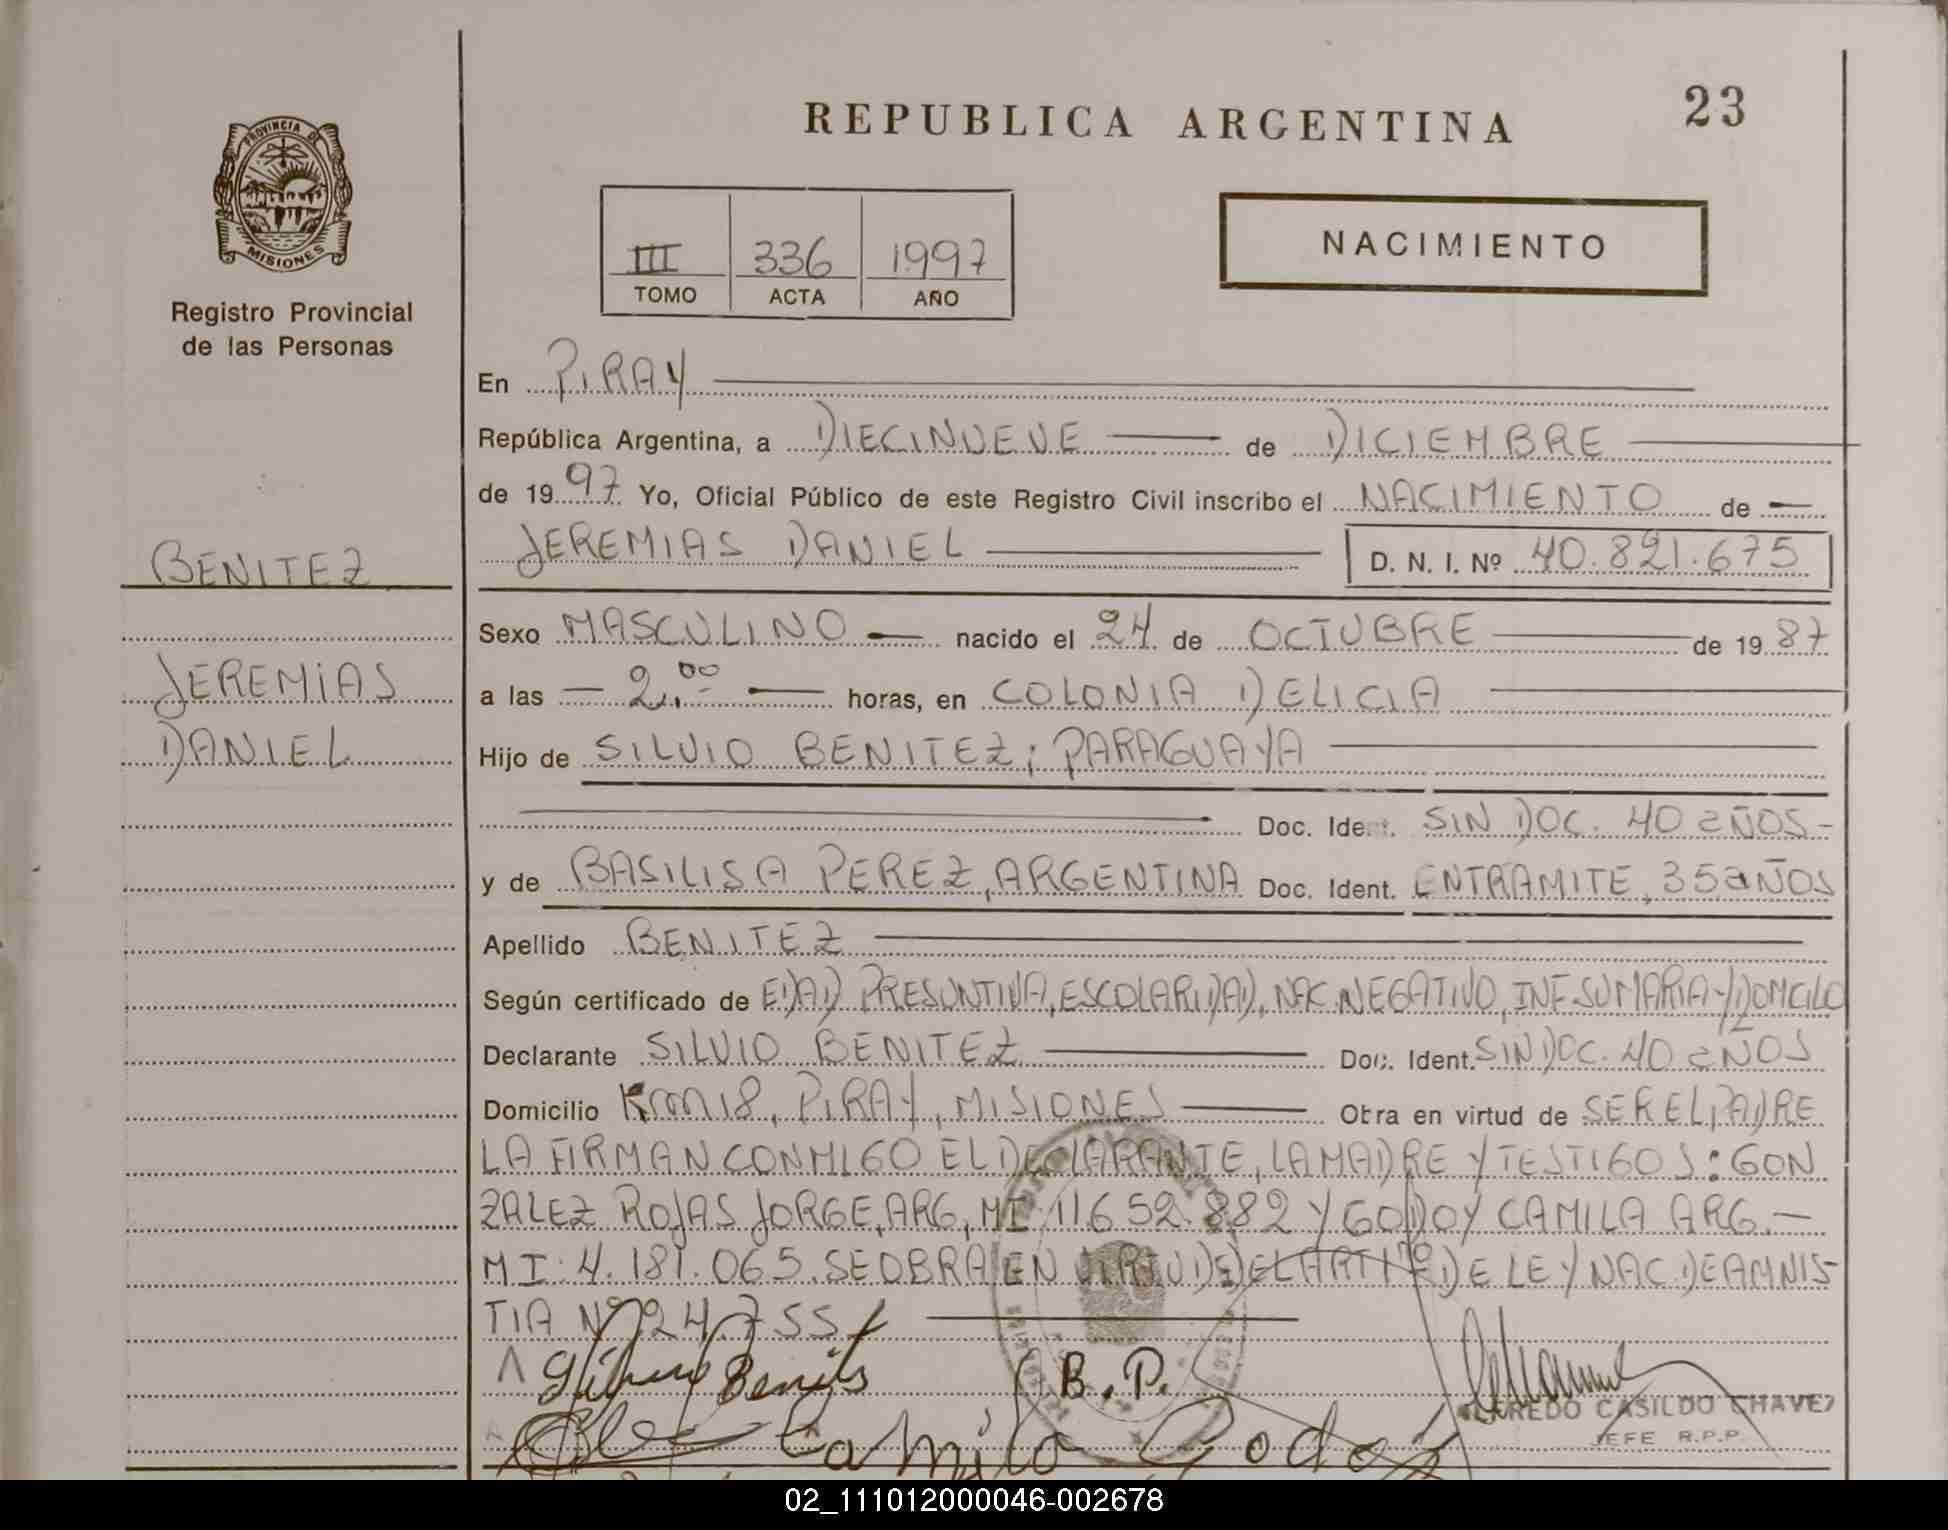 REPUBLICA ARGENTINA
23
PROVINCIA DE
MISIONES
Registro Provincial
de las Personas
III 336 1997
TOMO ACTA AÑO
NACIMIENTO
En PIRAY
República Argentina, a DIECINUEVE de DICIEMBRE
de 19 97 Yo, Oficial Público de este Registro Civil inscribo el NACIMIENTO de
JEREMIAS DANIEL D. N. I. Nº 40.821.675
BENITEZ
JEREMIAS
DANIEL
Sexo MASCULINO nacido el 24 de OCTUBRE de 19 87
a las 2.00 horas, en COLONIA DELICIA
Hijo de SILVIO BENITEZ; PARAGUAYA
Doc. Ident. SIN DOC. 40 AÑOS-
y de BASILISA PEREZ, ARGENTINA Doc. Ident. ENTRAMITE, 35 AÑOS
Apellido BENITEZ
Según certificado de EDAD PRESUNTIVA, ESCOLARIDAD, NAC. NEGATIVO, INF. SUMARIA Y DOMICILO
Declarante SILVIO BENITEZ Doc. Ident. SIN DOC. 40 AÑOS
Domicilio KM 18, PIRAY, MISIONES Otra en virtud de SER EL PADRE
LA FIRMAN CONMIGO EL DECLARANTE, LA MADRE Y TESTIGOS: GON
ZALEZ ROJAS JORGE, ARG, MI 11652.882 Y GODOY CAMILA ARG.-
MI: 4.181.065. SE OBRA EN VIRTUD DEL ART 1º DE LEY NAC DE AMNIS-
TIA Nº 24.755
Silvio Benites B.P.
Camila Godoy
ALFREDO CASILDO CHAVEZ
JEFE R.P.P.
02_111012000046-002678